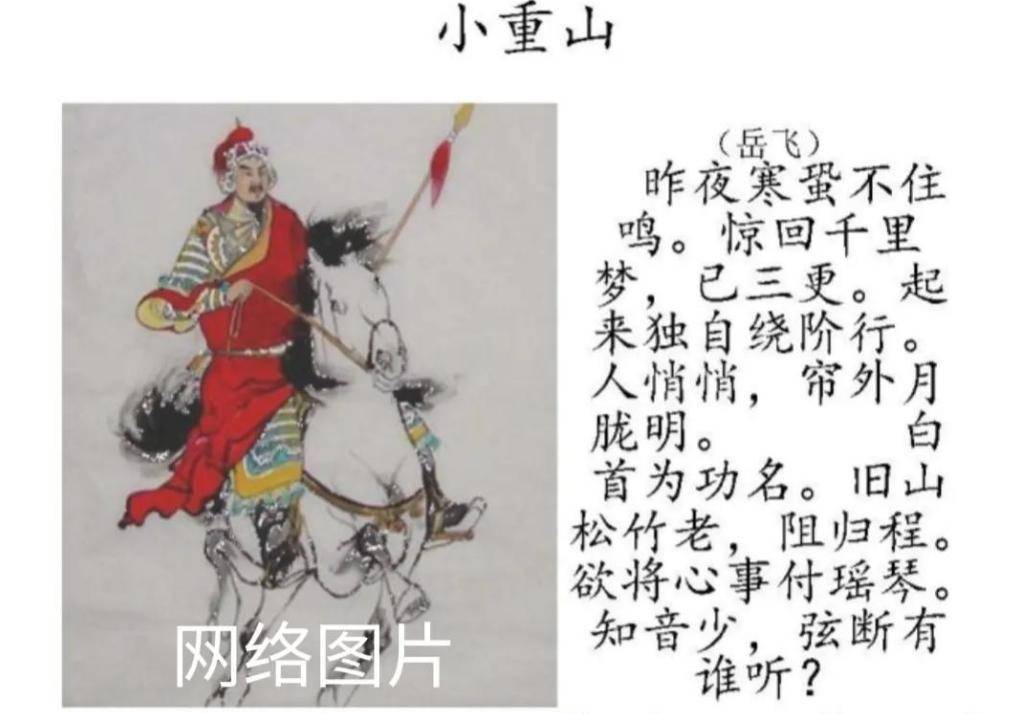 小重山
（岳飞）
昨夜寒蛩不住
鸣。惊回千里
梦，已三更。起
来独自绕阶行。
人悄悄，帘外月
胧明。 白
首为功名。旧山
松竹老，阻归程。
欲将心事付瑶琴。
知音少，弦断有
谁听？
网络图片